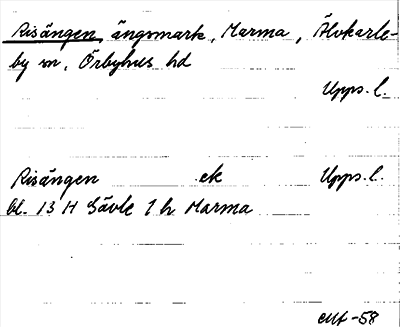 Risängen, ängsmark, Marma, Älvkarle-
by sn, Örbyhus hd
Upps. l.
Risängen ek Upps. l.
bl. 13 H Gävle 1 h Marma
-58